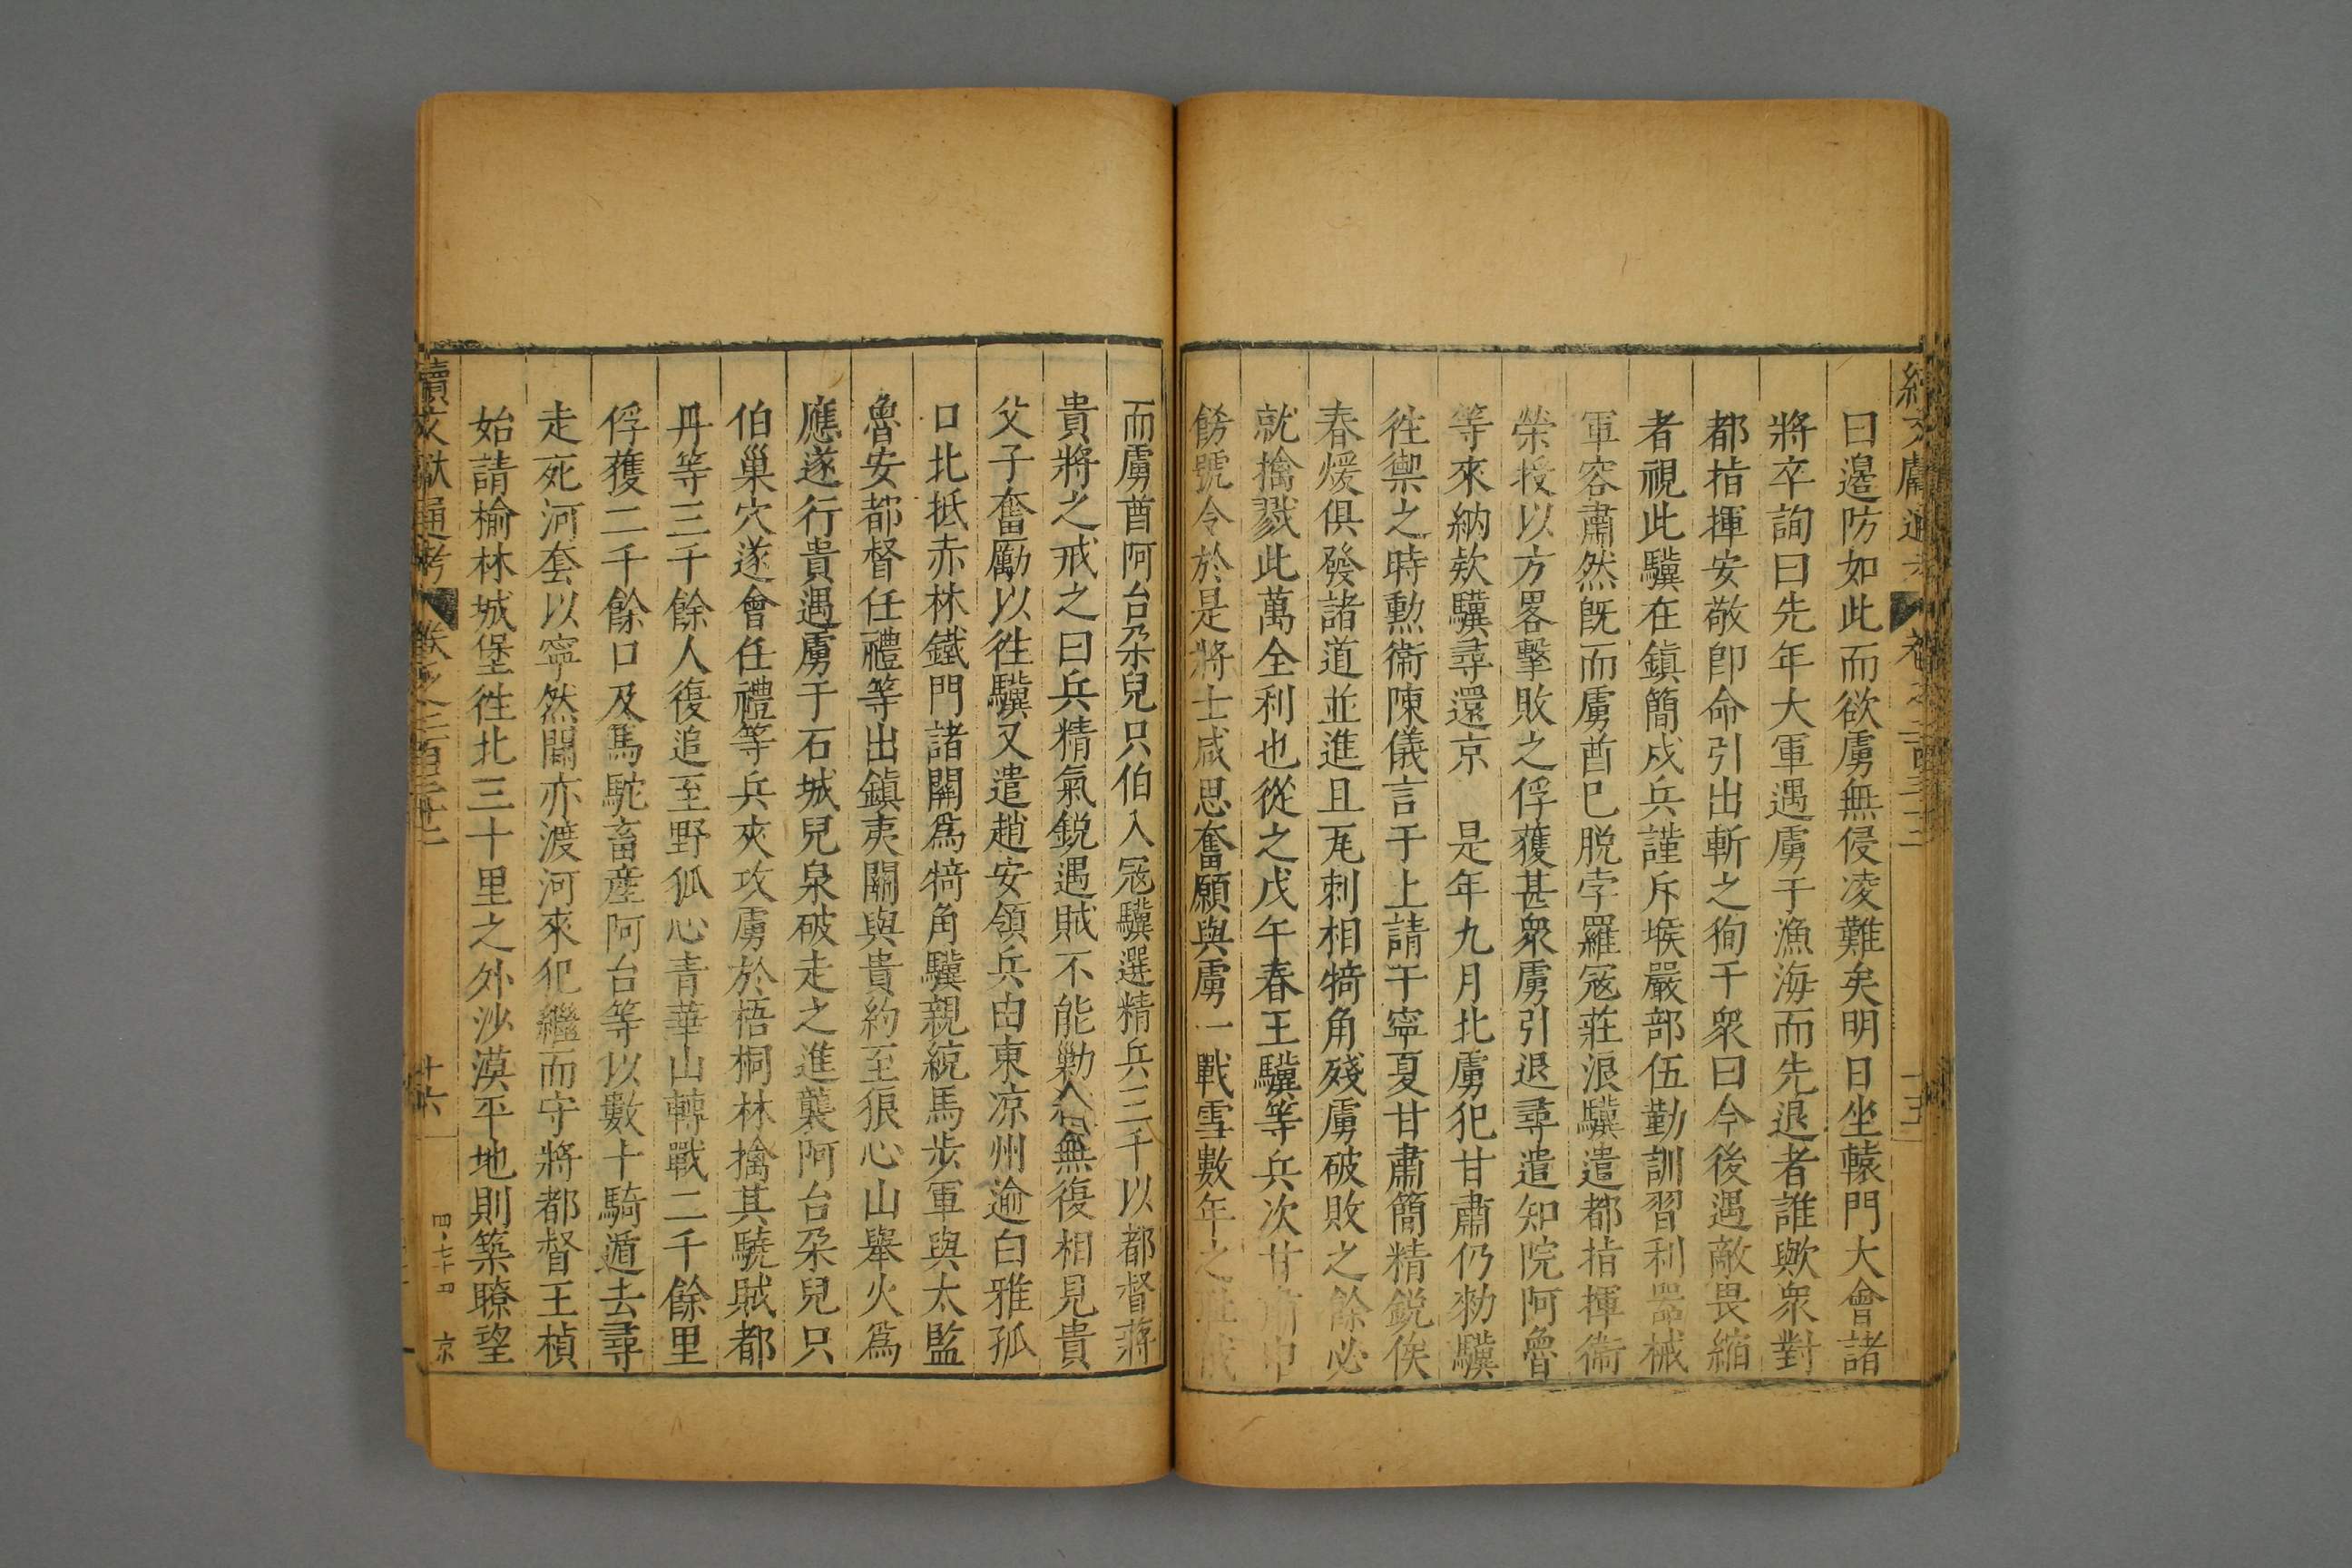 曰邉防如此而欲虜無侵凌難矣明日坐轅門大會諸
將卒詢曰先年大軍遇虜于漁海而先退者誰歟衆對
都指揮安敬卽命引出斬之徇于衆曰今後遇敵畏縮
者視此驥在鎮簡戍兵謹斥堠嚴部伍勤訓習利器械
軍容肅然旣而虜酋巳脱孛羅冦莊浪驥遣都指揮衞
榮授以方畧擊敗之俘獲甚衆虜引退尋遣知院阿魯
等來納欵驥尋還京　是年九月北虜犯甘肅仍勑驥
徃禦之時勲衞陳儀言于上請于寧夏甘肅簡精鋭俟
春煖俱發諸道並進且瓦剌相犄角殘虜破敗之餘必
就擒戮此萬全利也從之戊午春王驥等兵次甘肅申
餝號令於是將士咸思奮願與虜一戰雪數年之
而虜酋阿台朶兒只伯入冦驥選精兵三千以都督蔣
貴將之戒之曰兵精氣鋭遇賊不能勦無復相見貴
父子奮勵以徃驥又遣趙安領兵由東凉州逾白雅孤
口北抵赤林鐵門諸關爲犄角驥親統馬步軍與太監
魯安都督任禮等出鎮夷關與貴約至狼心山舉火爲
應遂行貴遇虜于石城兒泉破走之進襲阿台朶兒只
伯巢穴遂會任禮等兵夾攻虜於梧桐林擒其驍賊都
丹等三千餘人復追至野狐心青華山轉戰二千餘里
俘獲二千餘口及馬駝畜産阿台等以數十騎遁去尋
走死河套以寧然間亦渡河來犯繼而守將都督王楨
始請榆林城堡徃北三十里之外沙漠平地則築瞭望
續文獻通考　卷之二百三十七　十六　四七十四　京